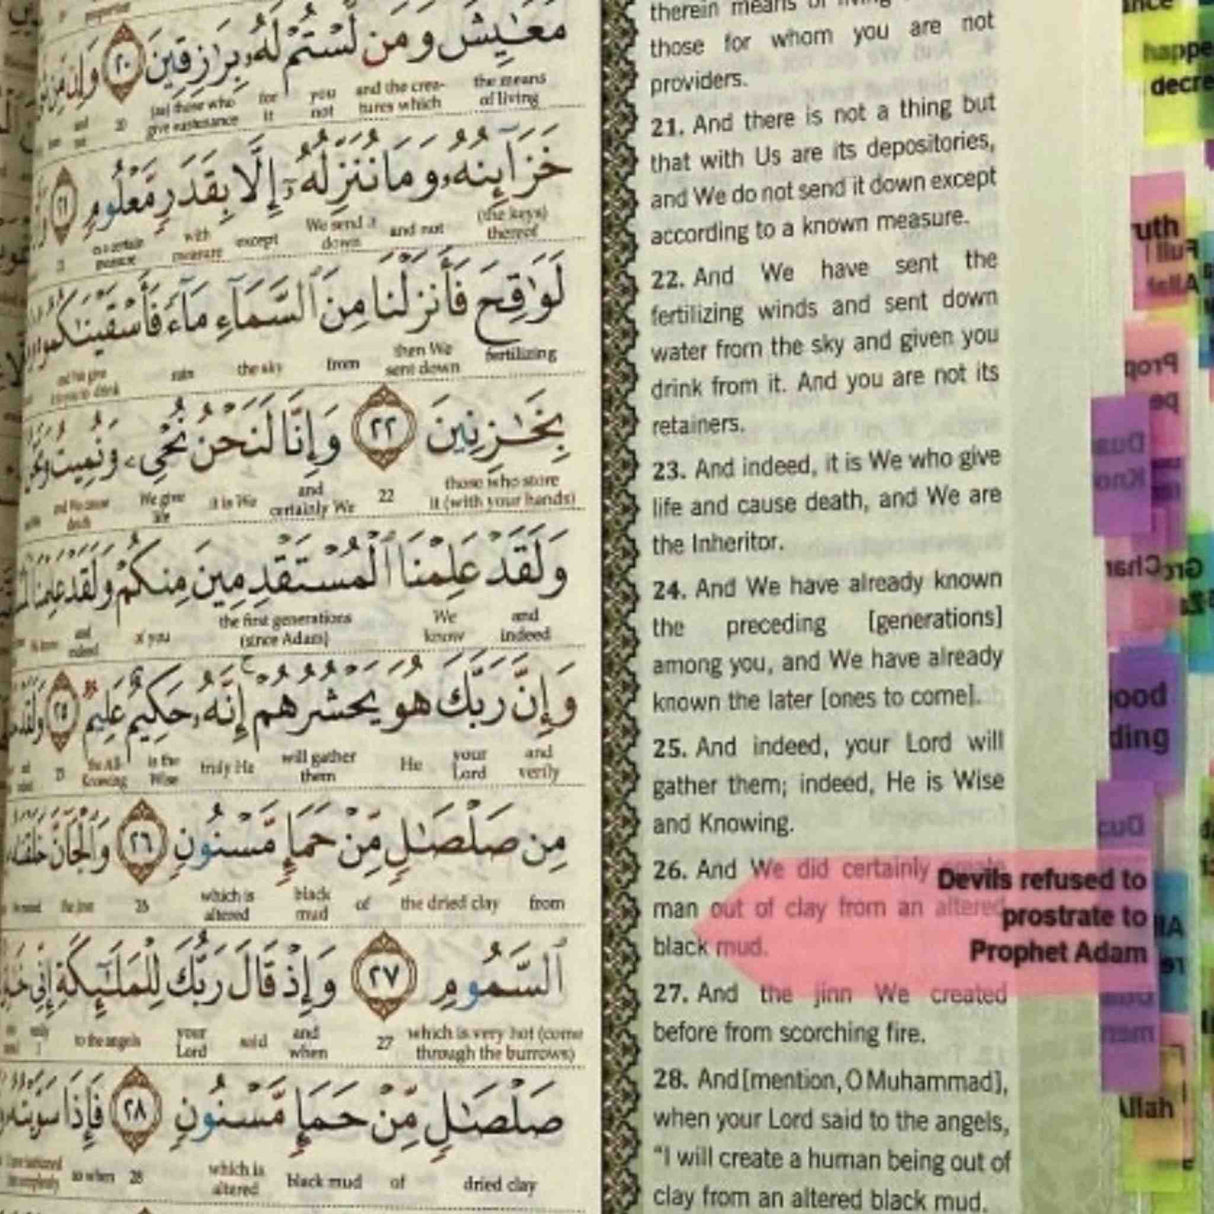 مَعَايِشَ وَمَن لَّسْتُمْ لَهُۥ بِرَازِقِينَ ٢٠ وَإِن مِّن
the means of living
and the crea-tures which
you not
for it
(as) those who give sustenance
20
خَزَآئِنُهُۥ وَمَا نُنَزِّلُهُۥٓ إِلَّا بِقَدَرٍ مَّعْلُومٍ ٢١
(the keys) thereof
and not
We send it down
except
with measure
لَوَٰقِحَ فَأَنزَلْنَا مِنَ ٱلسَّمَآءِ مَآءً فَأَسْقَيْنَٰكُمُوهُ
fertilizing
then We sent down
from
the sky
rain
بِخَٰزِنِينَ ٢٢ وَإِنَّا لَنَحْنُ نُحْىِۦ وَنُمِيتُ
those who store it (with your hands)
22
and certainly We
it is We
We give life
and We cause death
وَلَقَدْ عَلِمْنَا ٱلْمُسْتَقْدِمِينَ مِنكُمْ وَلَقَدْ عَلِمْنَا
and indeed
We know
the first generations (since Adam)
of you
and indeed
We know
وَإِنَّ رَبَّكَ هُوَ يَحْشُرُهُمْ إِنَّهُۥ حَكِيمٌ عَلِيمٌ ٢٥ وَلَقَدْ
and verily
your Lord
He
will gather them
truly He
is the Wise
the All-Knowing
25
مِن صَلْصَٰلٍ مِّنْ حَمَإٍ مَّسْنُونٍ ٢٦ وَٱلْجَآنَّ خَلَقْنَٰهُ
from
the dried clay
of
black mud
which is altered
26
ٱلسَّمُومِ ٢٧ وَإِذْ قَالَ رَبُّكَ لِلْمَلَٰٓئِكَةِ إِنِّى
which is very hot (come through the burrows)
27
and when
said
your Lord
to the angels
صَلْصَٰلٍ مِّنْ حَمَإٍ مَّسْنُونٍ ٢٨ فَإِذَا سَوَّيْتُهُۥ
dried clay
of
black mud
which is altered
28
so when
therein means of living
those for whom you are not
providers.
21. And there is not a thing but
that with Us are its depositories,
and We do not send it down except
according to a known measure.
22. And We have sent the
fertilizing winds and sent down
water from the sky and given you
drink from it. And you are not its
retainers.
23. And indeed, it is We who give
life and cause death, and We are
the Inheritor.
24. And We have already known
the preceding [generations]
among you, and We have already
known the later [ones to come].
25. And indeed, your Lord will
gather them; indeed, He is Wise
and Knowing.
26. And We did certainly create
man out of clay from an altered
black mud.
27. And the jinn We created
before from scorching fire.
28. And [mention, O Muhammad],
when your Lord said to the angels,
"I will create a human being out of
clay from an altered black mud.
Devils refused to
prostrate to
Prophet Adam
happe
decre
uth
ood
ding
Allah